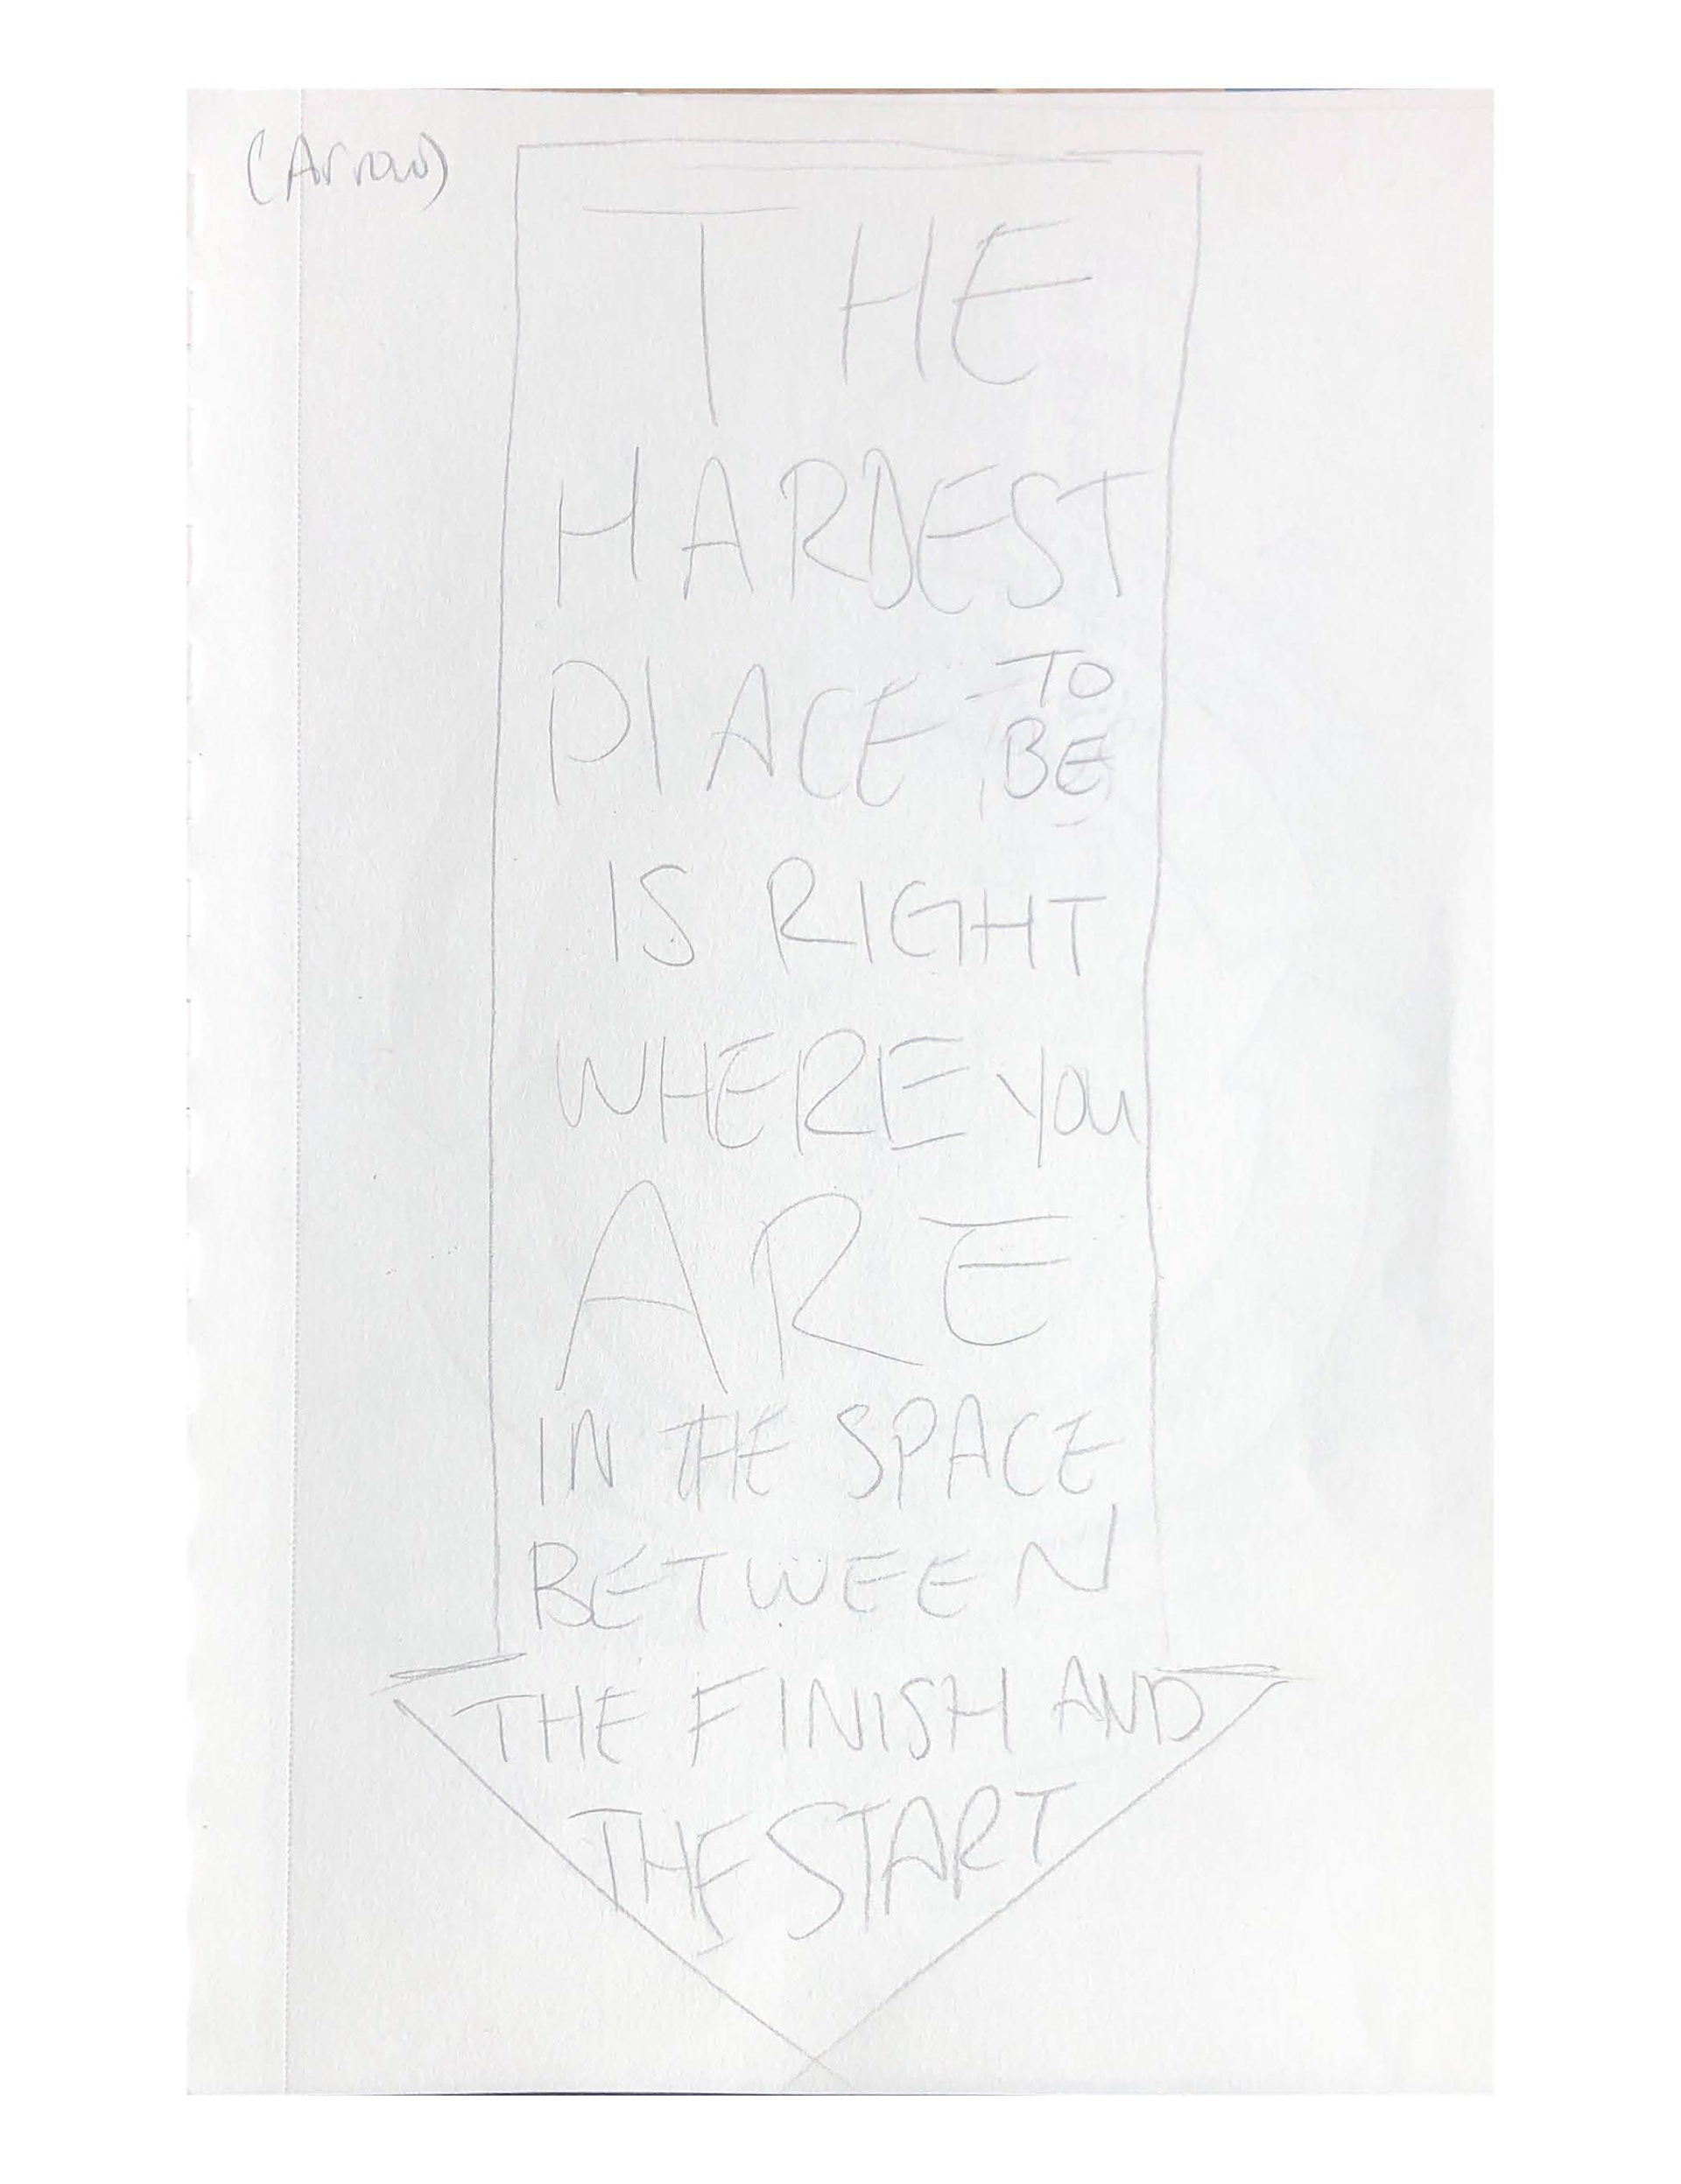 (Arrow)
THE
HARDEST
PLACE TO
BE
IS RIGHT
WHERE YOU
ARE
IN THE SPACE
BETWEEN
THE FINISH AND
THE START